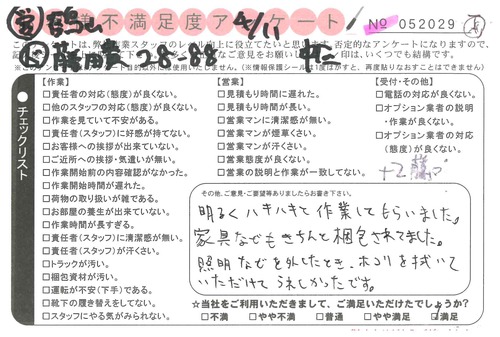 不満足度アンケート
№ 052029
4/11
28-88
このアンケートは、弊社作業スタッフのレベル向上に役立てたいと思います。否定的なアンケートになりますので、
【作業】
□責任者の対応(態度)が良くない。
□他のスタッフの対応(態度)が良くない。
□作業を見ていて不安がある。
□責任者(スタッフ)に好感が持てない。
□お客様への挨拶が出来ていない。
□ご近所への挨拶・気遣いが無い。
□作業開始前の内容確認がなかった。
□作業開始時間が遅れた。
□荷物の取り扱いが雑である。
□お部屋の養生が出来ていない。
□作業時間が長すぎる。
□責任者(スタッフ)に清潔感が無い。
□責任者(スタッフ)が汗くさい。
□トラックが汚い。
□梱包資材が汚い。
□運転が不安(下手)である。
□靴下の履き替えをしてない。
□スタッフにやる気がみられない。
【営業】
□見積もり時間に遅れた。
□見積もり時間が長い。
□営業マンに清潔感が無い。
□営業マンが煙草くさい。
□営業マンが汗くさい。
□営業態度が良くない。
□営業の説明と作業が一致してない。
【受付・その他】
□電話の対応が良くない。
□オプション業者の説明
・作業が良くない。
□オプション業者の対応
(態度)が良くない。
チェックリスト
その他、ご意見・ご要望等ありましたらお書き下さい。
明るくハキハキと作業してもらいました。
家具などもきちんと梱包されてました。
照明などを外したとき、ホコリを拭いて
いただけてうれしかったです。
☆当社をご利用いただきまして、ご満足いただけたでしょうか?
□不満 □やや不満 □普通 □やや満足 □満足